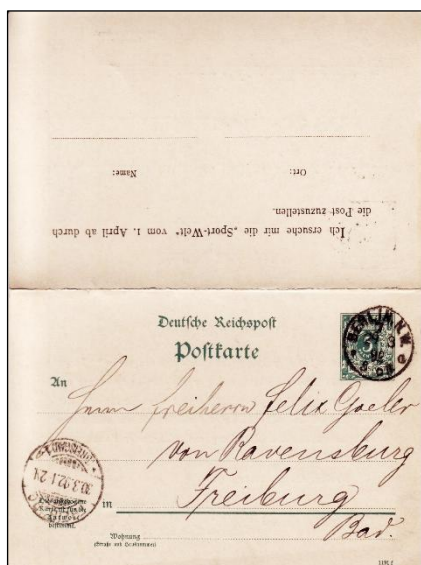 Ich ersuche mir die „Sport-Welt“ vom 1. April ab durch
die Post zuzustellen.
Ort: Name:
Deutsche Reichspost
Postkarte
BERLIN N.W.
An
Herrn Freiherrn Felix Goeler
von Ravensburg
30.3.92.1-2N.
in Freiburg
Bad.
Antwort
bestimmt.
Wohnung
(Straße und Hausnummer)